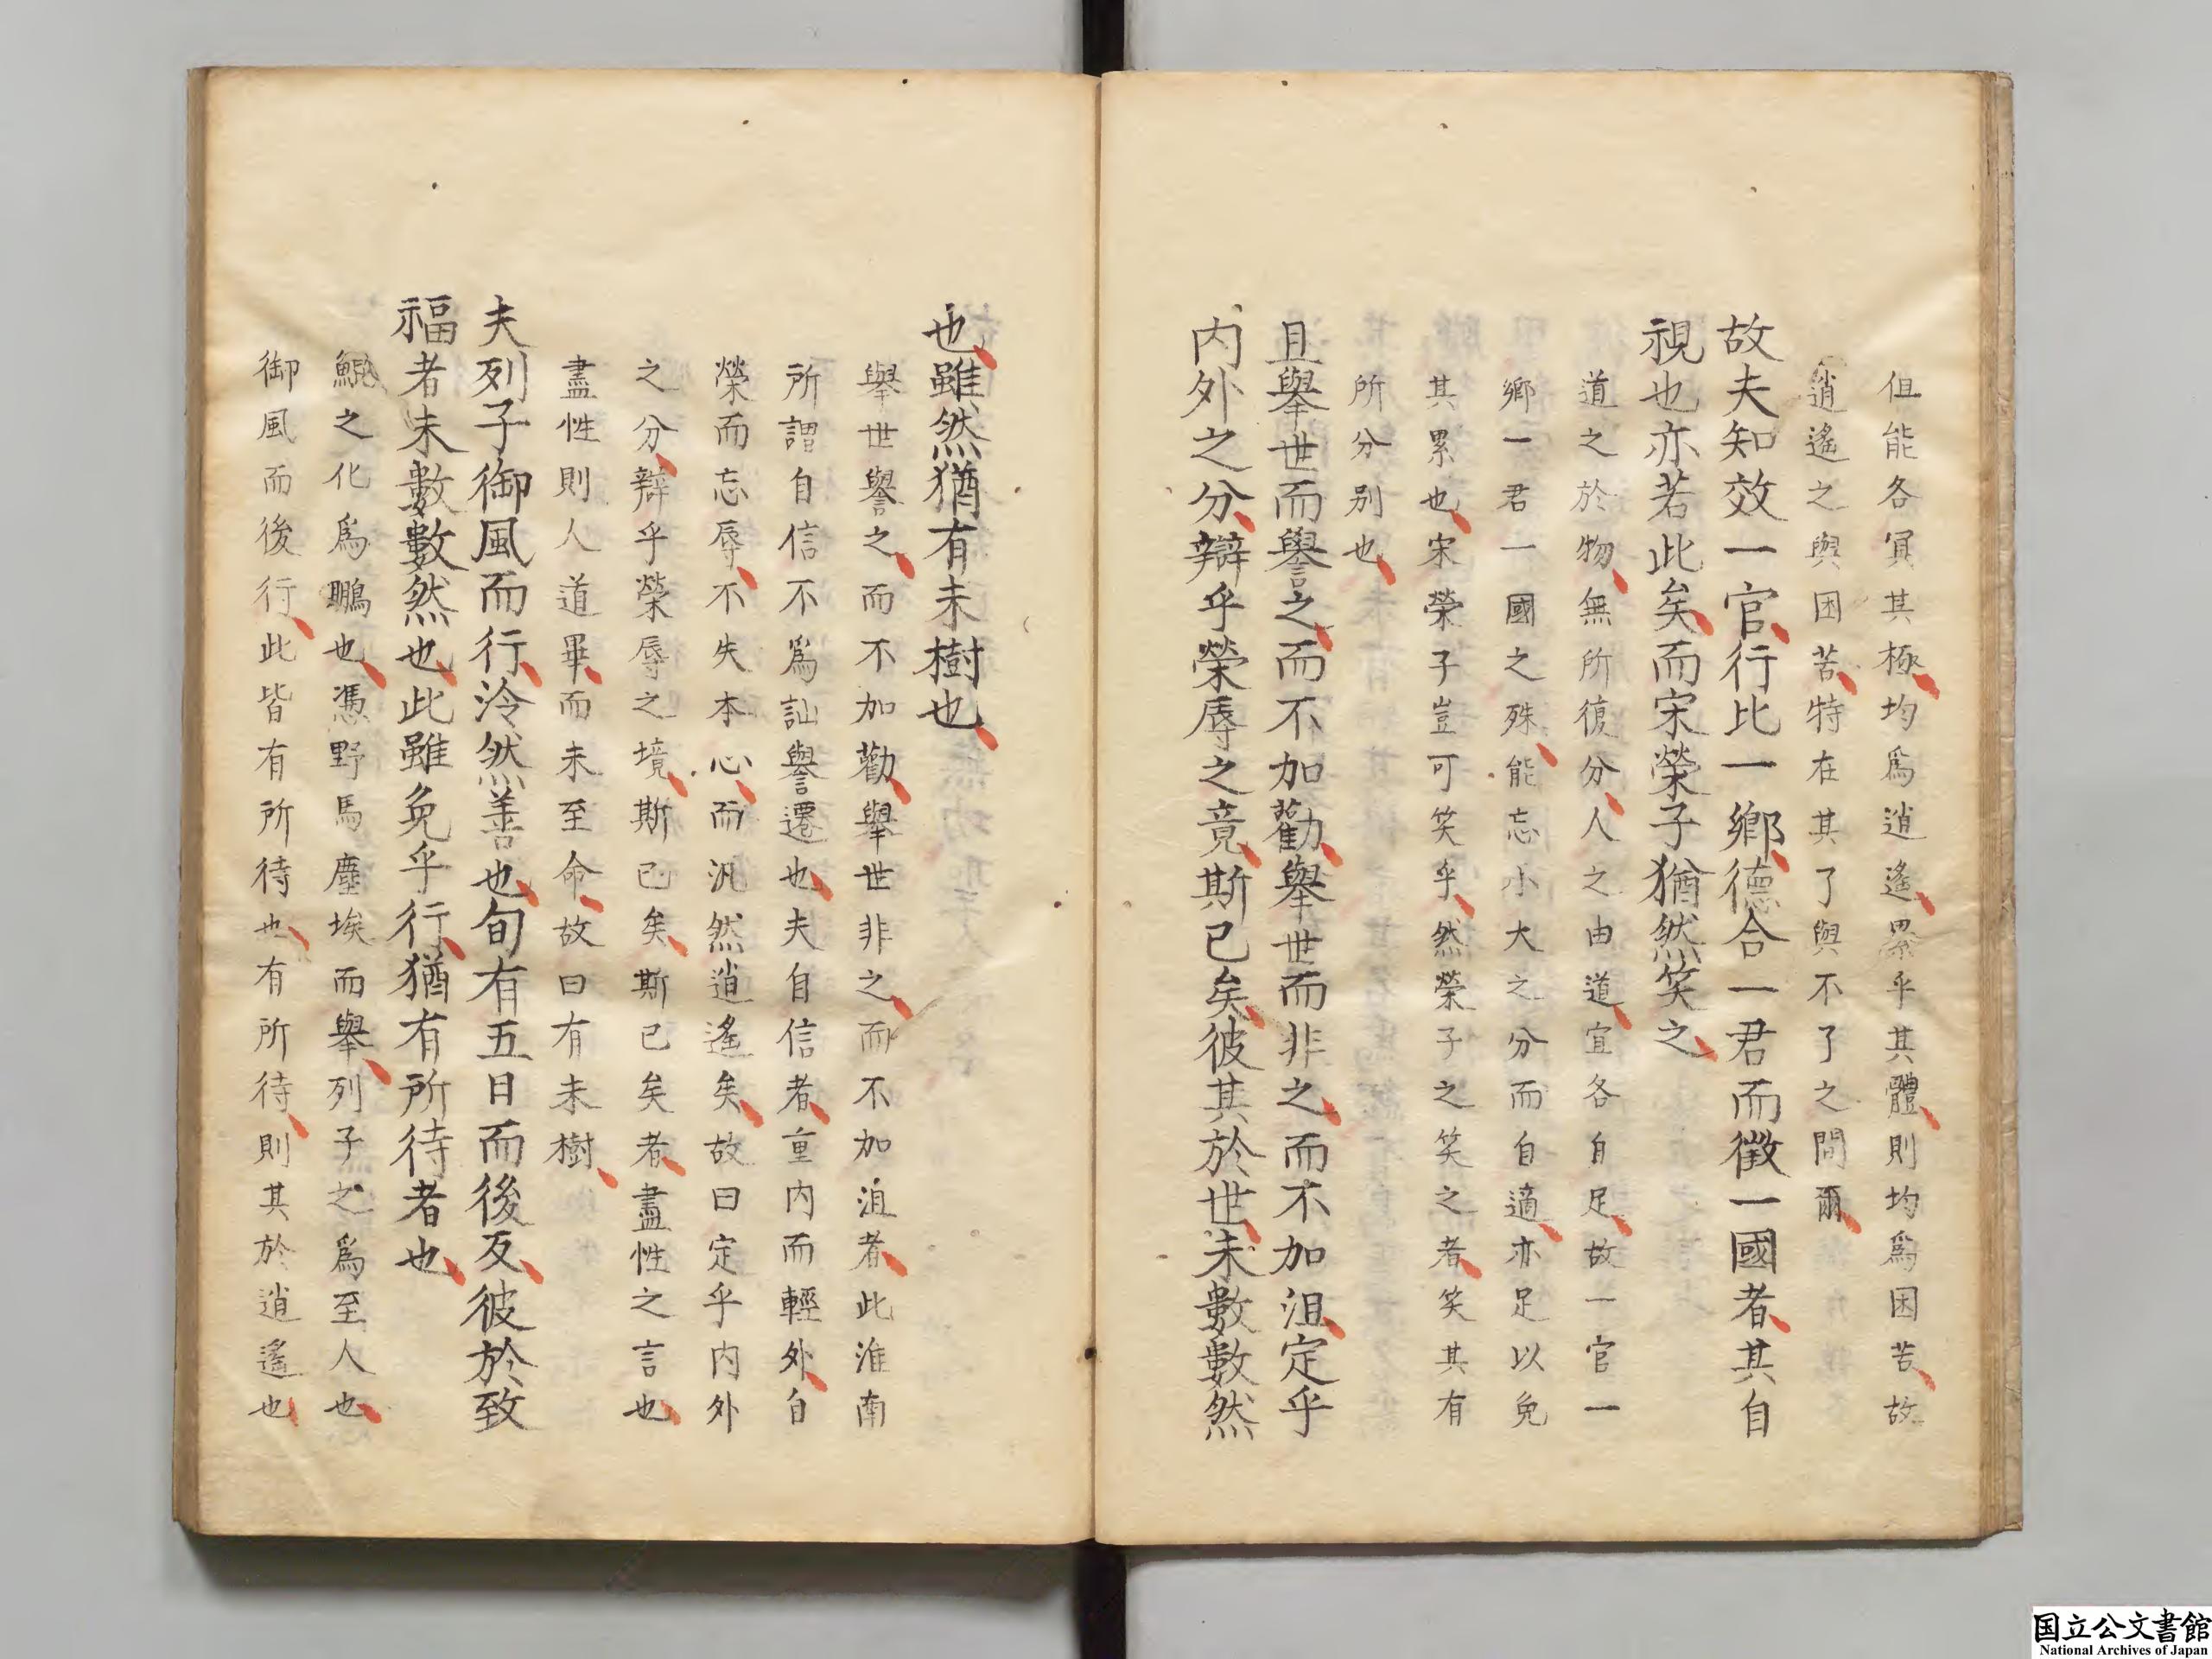 但能各冥其極均爲逍遙累乎其體則均爲困苦故
逍遙之與困苦特在其了與不了之間爾
故夫知效一官行比一鄉德合一君而徵一國者其自
視也亦若此矣而宋榮子猶然笑之
道之於物無所復分人之由道宜各自足故一官一
鄉一君一國之殊能忘小大之分而自適亦足以免
其累也宋榮子豈可笑乎然榮子之笑之者笑其有
所分別也
且舉世而譽之而不加勸舉世而非之而不加沮定乎
內外之分辯乎榮辱之竟斯已矣彼其於世未數數然
也雖然猶有未樹也
舉世譽之而不加勸舉世非之而不加沮者此淮南
所謂自信不爲訕譽遷也夫自信者重內而輕外自
榮而忘辱不失本心而汎然逍遙矣故曰定乎內外
之分辯乎榮辱之境斯已矣斯已矣者盡性之言也
盡性則人道畢而未至命故曰有未樹
夫列子御風而行泠然善也旬有五日而後反彼於致
福者未數數然也此雖免乎行猶有所待者也
鯤之化爲鵬也憑野馬塵埃而舉列子之爲至人也
御風而後行此皆有所待也有所待則其於逍遙也
国立公文書館
National Archives of Japan